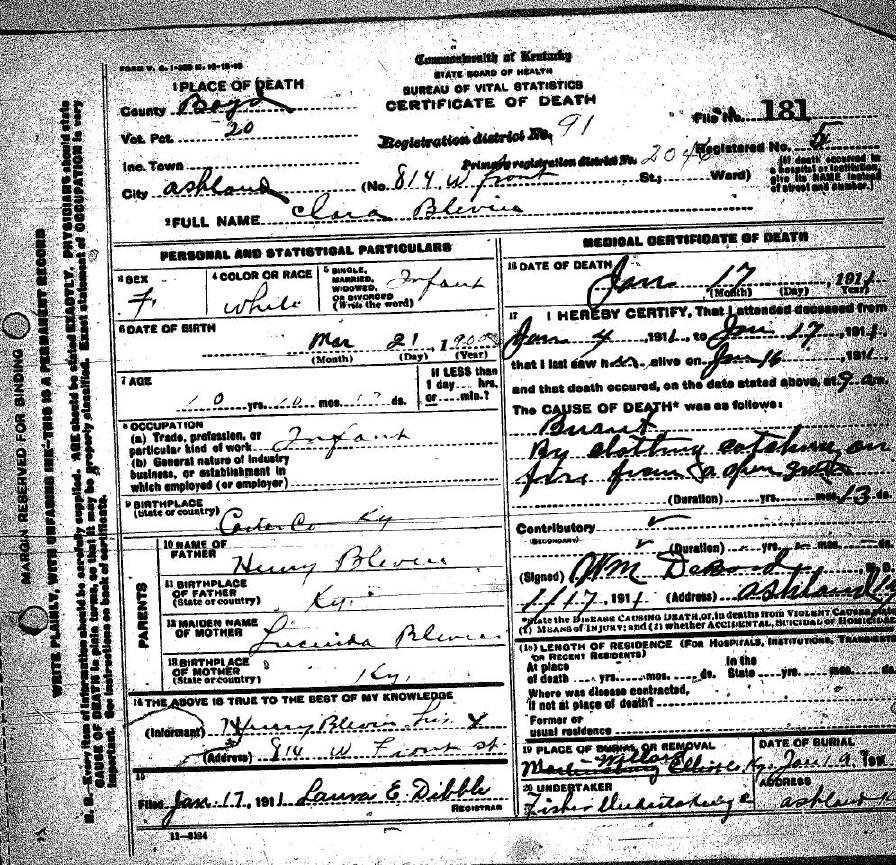 Commonwealth of Kentucky
STATE BOARD OF HEALTH
BUREAU OF VITAL STATISTICS
CERTIFICATE OF DEATH
1 PLACE OF DEATH
County Boyd
Vot. Pct. 20
Inc. Town
City Ashland
Registration district No. 91
Primary registration district No. 2046
File No. 181
Registered No. 5
(No. 814 W Front St.; Ward)
(If death occurred in a hospital or institution give its NAME instead of street and number.)
2 FULL NAME Clara Blevins
PERSONAL AND STATISTICAL PARTICULARS
3 SEX F.
4 COLOR OR RACE White
5 SINGLE, MARRIED, WIDOWED, OR DIVORCED (Write the word) Infant
6 DATE OF BIRTH
Mar 21, 1900
(Month) (Day) (Year)
7 AGE
10 yrs. mos. ds.
If LESS than 1 day hrs. or min.?
8 OCCUPATION
(a) Trade, profession, or particular kind of work Infant
(b) General nature of industry business, or establishment in which employed (or employer)
9 BIRTHPLACE
(State or country) Carter Co Ky
PARENTS
10 NAME OF FATHER Henry Blevins
11 BIRTHPLACE OF FATHER (State or country) Ky.
12 MAIDEN NAME OF MOTHER Lucinda Blevins
13 BIRTHPLACE OF MOTHER (State or country) Ky.
14 THE ABOVE IS TRUE TO THE BEST OF MY KNOWLEDGE
(Informant) Henry Blevins his X
(Address) 814 W Front st.
15
Filed Jan. 17, 1911 Laura E. Dibble
REGISTRAR
11-3184
MEDICAL CERTIFICATE OF DEATH
16 DATE OF DEATH
Jan 17, 1911
(Month) (Day) Year)
17 I HEREBY CERTIFY, That I attended deceased from
Jan 4, 1911, to Jan 17, 1911
that I last saw alive on Jan 16, 1911
and that death occured, on the date stated above, at 9 am
The CAUSE OF DEATH* was as follows:
Burnt
By clothing catching on
fire from open grate
(Duration) yrs. mos. 13 ds.
Contributory
(SECONDARY)
(Duration) yrs. mos. ds.
(Signed) WM
1/17, 1911 (Address) Ashland Ky
*State the DISEASE CAUSING DEATH, or, in deaths from VIOLENT CAUSES,
(1) MEANS OF INJURY; and (2) whether ACCIDENTAL, SUICIDAL OR HOMICIDAL
(18) LENGTH OF RESIDENCE (FOR HOSPITALS, INSTITUTIONS, TRANSIENTS
OR RECENT RESIDENTS)
At place of death yrs. mos. ds. In the State yrs. mos.
Where was disease contracted, if not at place of death?
Former or usual residence
19 PLACE OF BURIAL OR REMOVAL
DATE OF BURIAL
Martinsburg Elliott Ky. Jan 19
20 UNDERTAKER
ADDRESS
Fisher Ashland
MARGIN RESERVED FOR BINDING
WRITE PLAINLY, WITH UNFADING INK—THIS IS A PERMANENT RECORD
N. B.—Every item of information should be carefully supplied. AGE should be stated EXACTLY. PHYSICIANS should state
CAUSE OF DEATH in plain terms, so that it may be properly classified. Exact statement of OCCUPATION is very
important. See instructions on back of certificate.